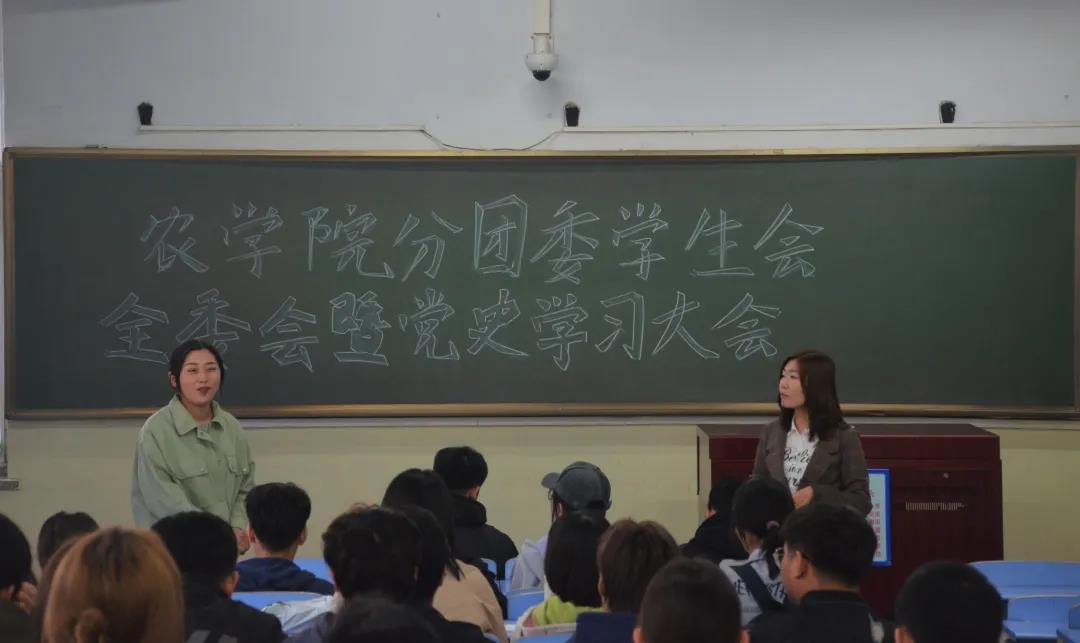 农学院分团委学生会
全委会暨党史学习大会